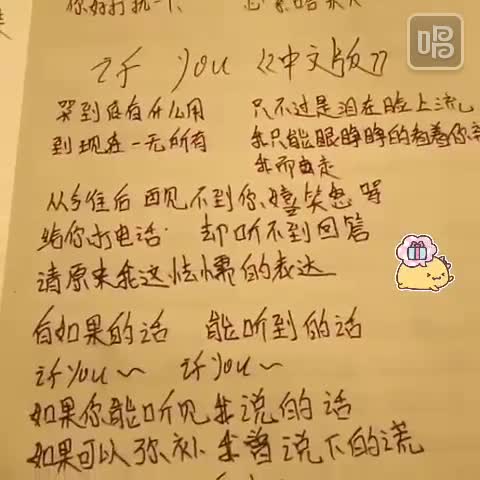 唱
许 you 《中文版》
哭到底有什么用 只不过是泪在脸上流
到现在一无所有 我只能眼睁睁的看着你
我而出走
从今往后 再见不到你 嬉笑怒骂
给你打电话 却听不到回答
请原来我这怯懦的表达
有如果的话 能听到的话
许you~ 许you~
如果你能听见我说的话
如果可以弥补 我曾说下的谎